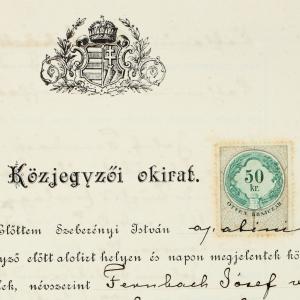 Közjegyzői okirat.
50
kr.
ÖTVEN KRAJCZÁR
Előttem Szeberényi István
yző előtt alolirt helyen és napon megjelentek kö
lek, névszerint Fernbach József